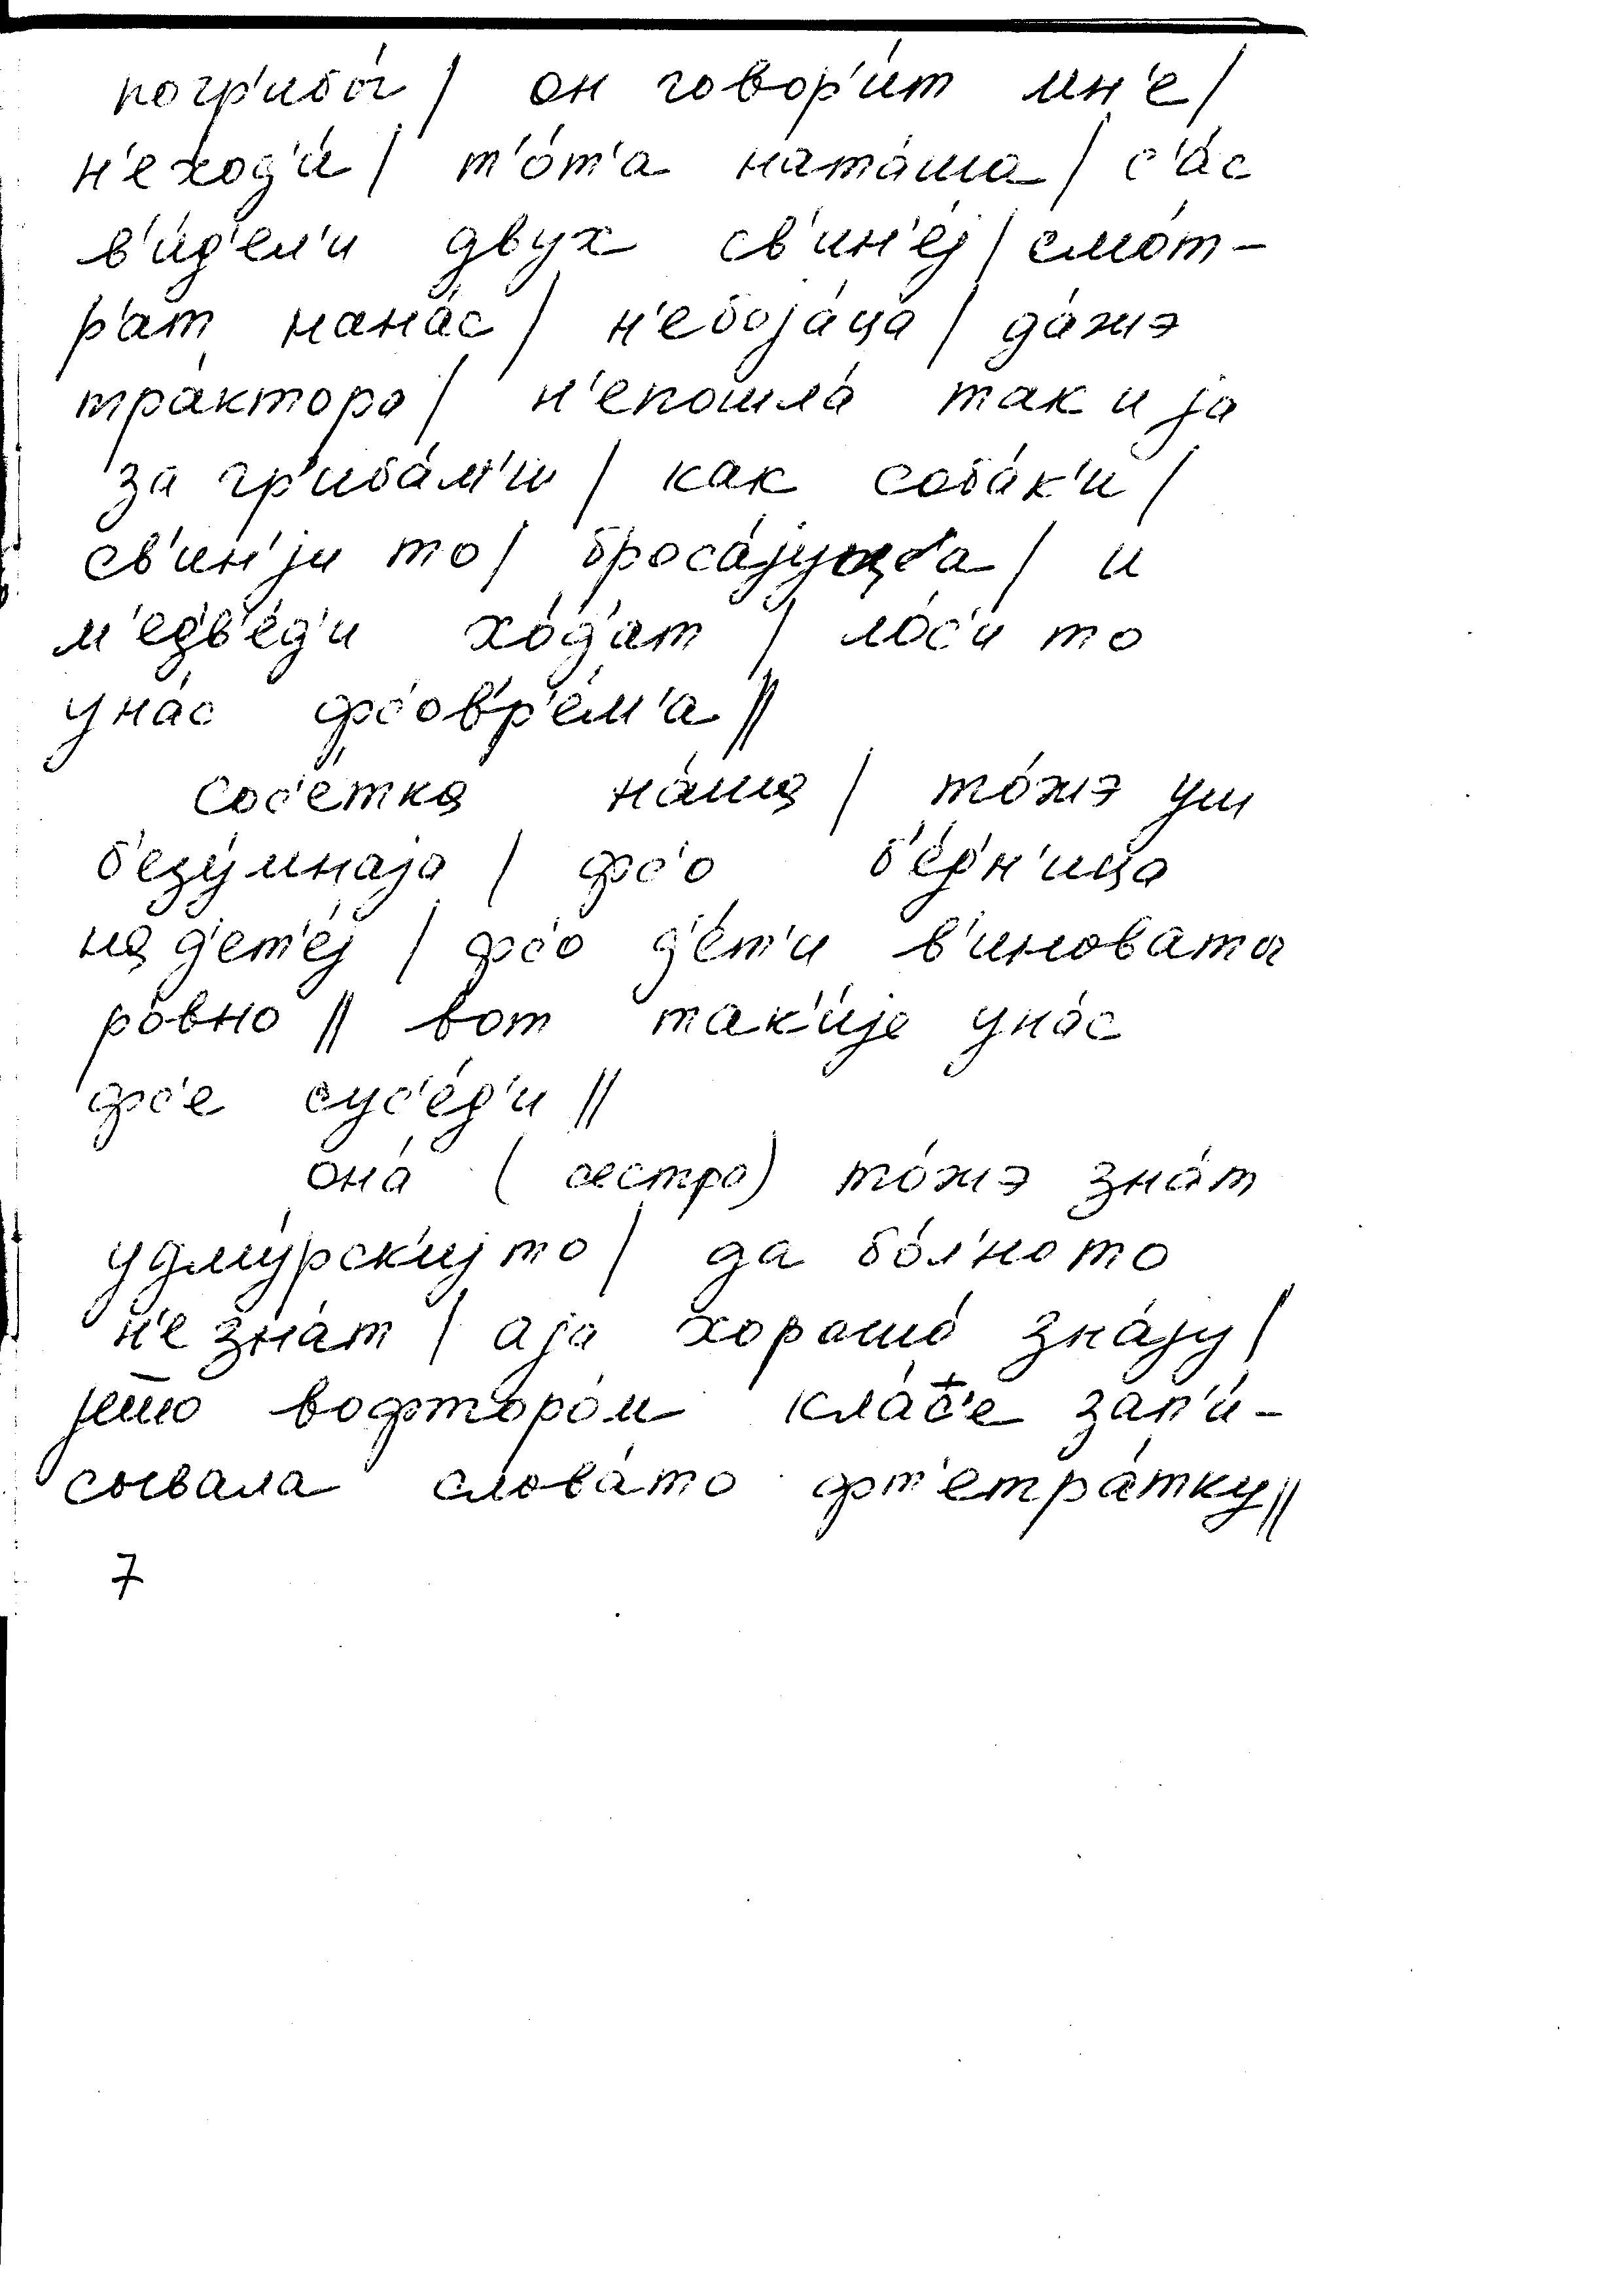 погр'ибы́ / он говор'и́т мн'е /
н'еход'и́ / т'о́т'а ната́ша / с'а́с
в'и́д'ел'и двух св'ин'е́j / смо́т-
р'ат нана́с / н'ебоjа́ца / да́жэ
тра́ктора / н'епошла́ так и jа
за гр'иба́м'и / как соба́к'и /
св'ин'jи то / броса́jуца / и
м'едв'е́д'и хо́д'ат / ло́с'и то
уна́с фс'овр'е́м'а //
сос'е́тка на́ша / то́жэ уш
б'езу́мнаjа / фс'о б'е́дн'ица
на д'ет'е́j / фс'о д'е́т'и в'иноваты
ро́вно // вот так'и́jе уна́с
фс'е сус'е́д'и //
она́ (сестра) то́жэ зна́т
удму́рск'иjто / да бо́л'ното
н'е зна́т / аjа хорошо́ зна́jу /
jешо вофторо́м кла́с̄'е зап'и́-
сывала слова́то фт'етра́тку //
7